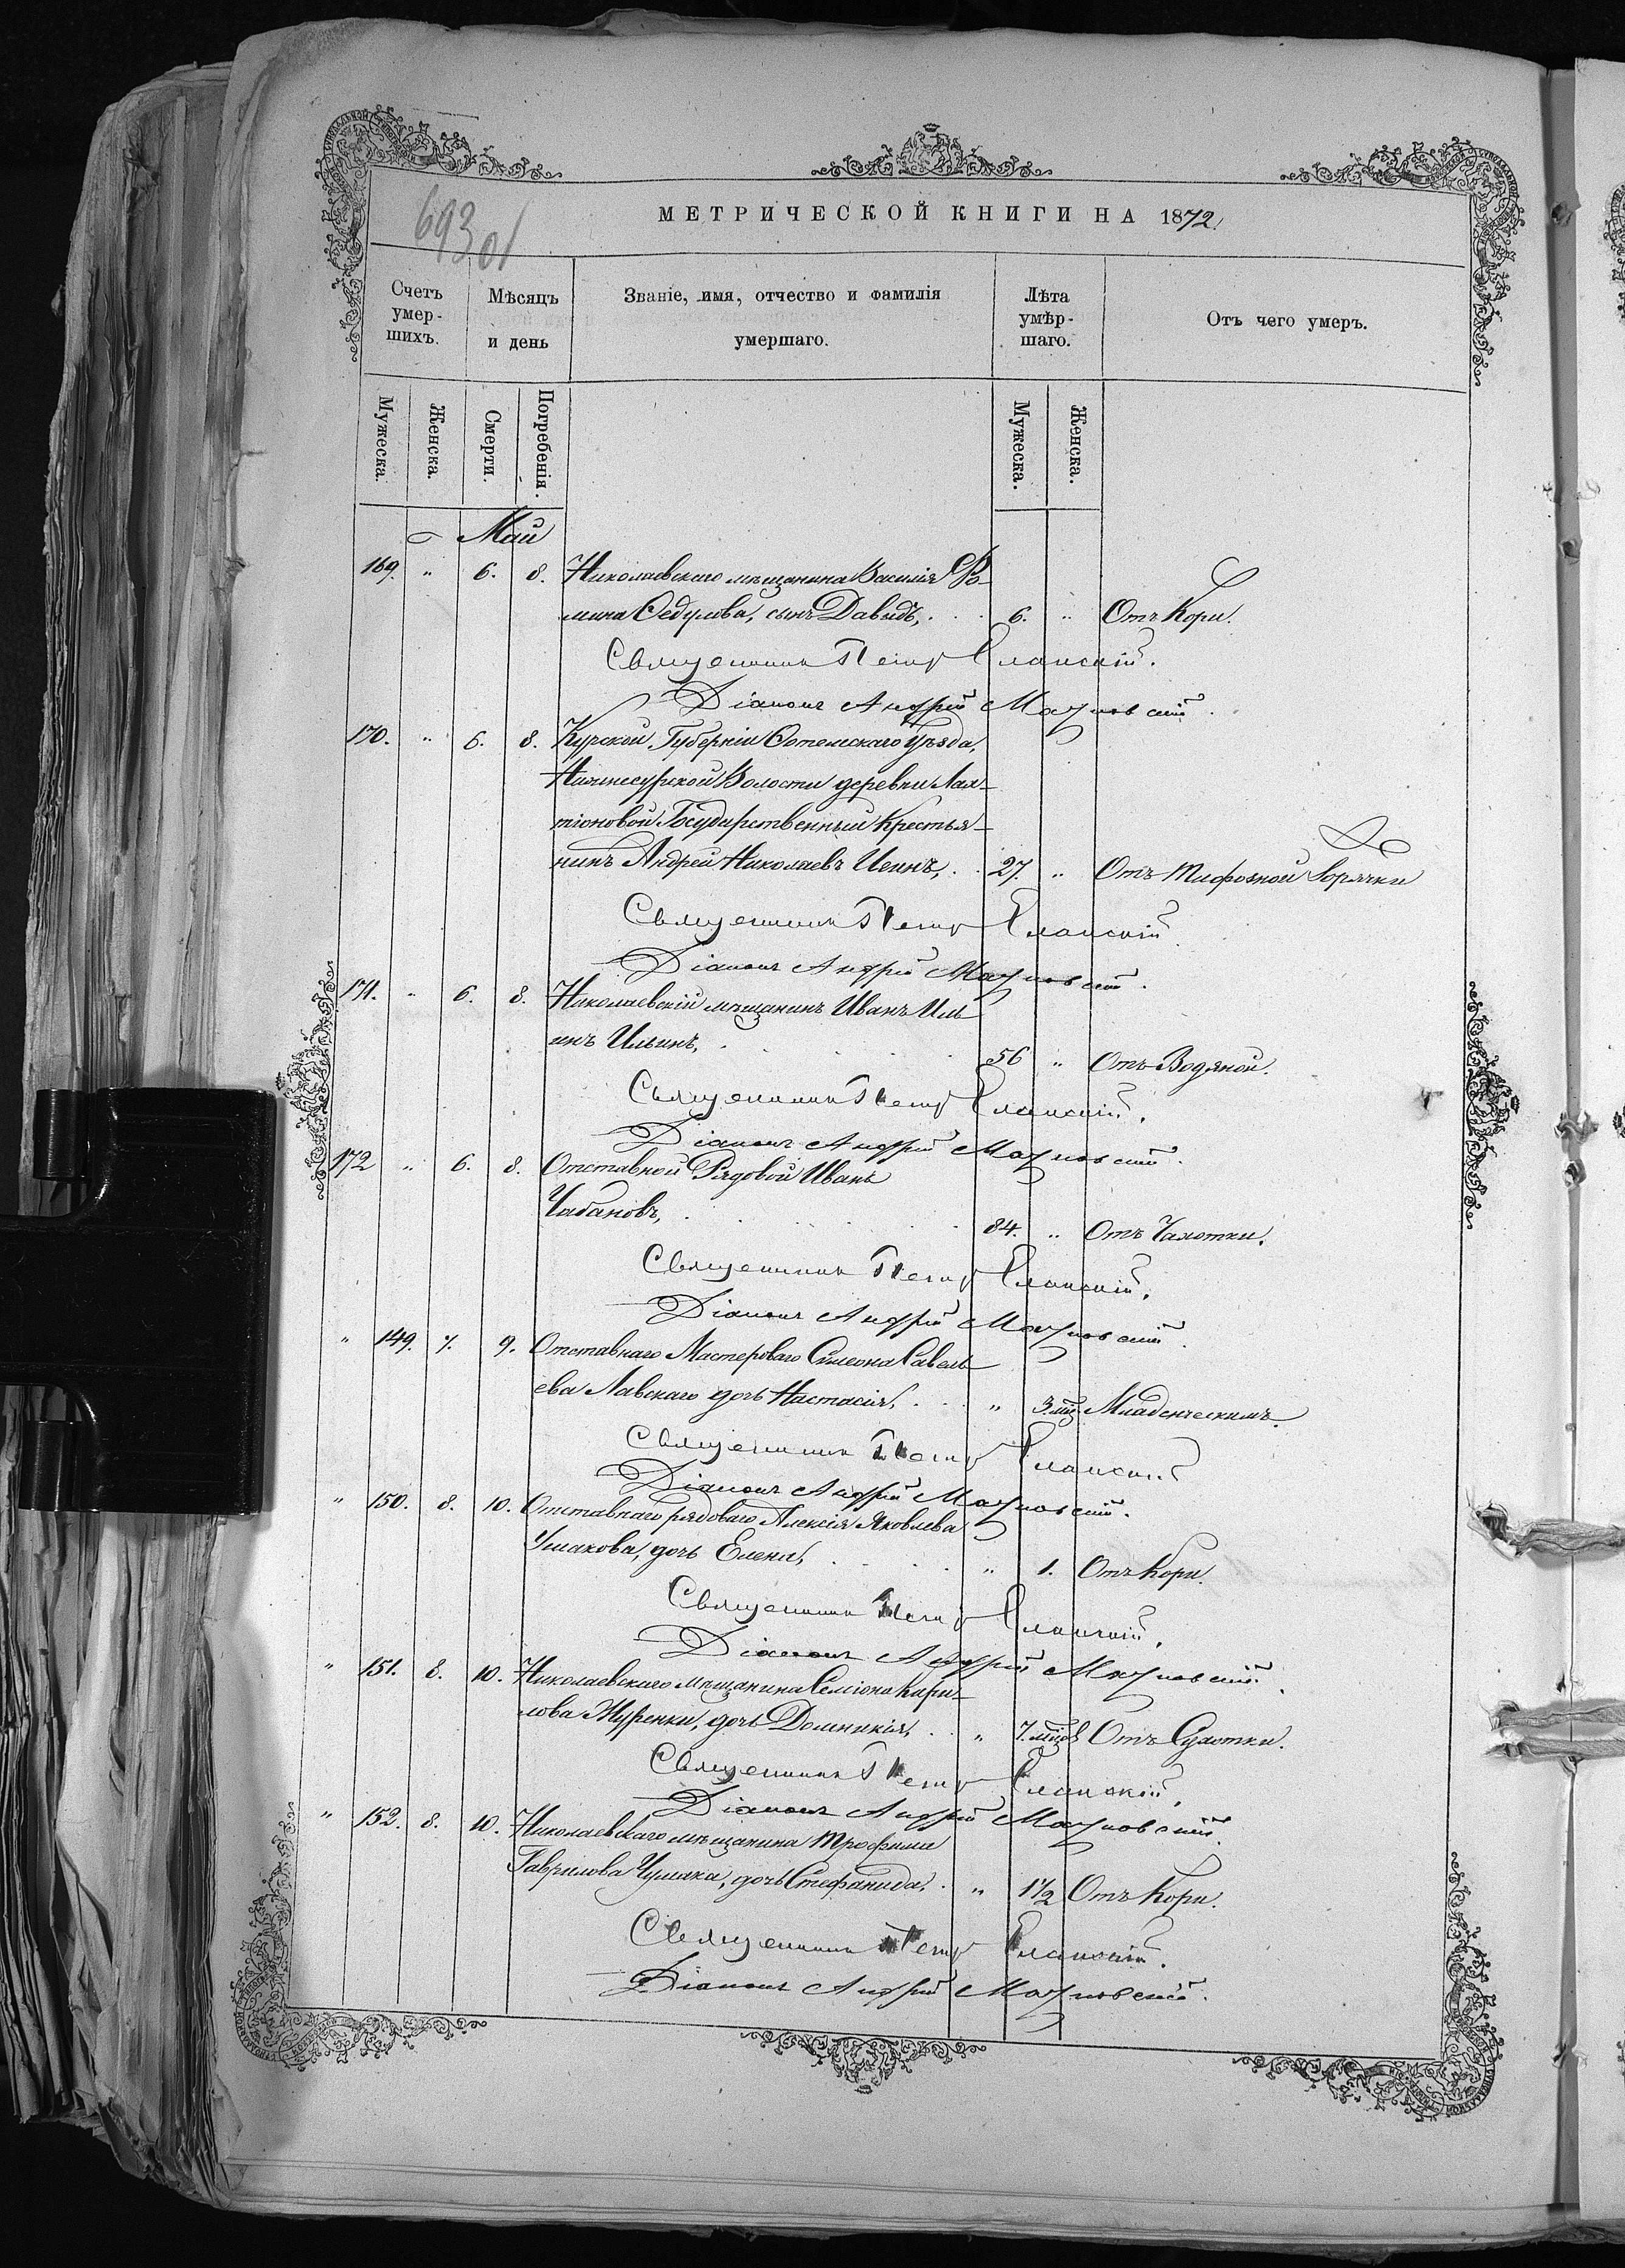 МЕТРИЧЕСКОЙ КНИГИ НА 1872.
693 об
Счетъ умер-шихъ.
Мѣсяцъ и день
Званіе, имя, отчество и фамилія умершаго.
Лѣта умѣр-шаго.
Отъ чего умеръ.
Мужеска. Женска. Смерти. Погребенія. Мужеска. Женска.
Май
169. " 6. 8. Николаевскаго мѣщанина Василія Ѳо-
мина Ѳедулова, сынъ Давыдъ, . . . 6. " Отъ Кори.
Священникъ Петръ Еланскій.
Діаконъ Андрей
170. " 6. 8. Курской Губерніи Уѣзда,
Волости деревни Лах-
тіоновой Государственный Крестья-
нинъ Андрей Николаевъ . . 27. " Отъ Тифозной Горячки
Священникъ Петръ Еланскій.
Діаконъ Андрей
171. " 6. 8. Николаевскій мѣщанинъ Иванъ Иль
инъ Ильинъ, . . . . . 56 " Отъ Водяной.
Священникъ Петръ Еланскій.
Діаконъ Андрей
172 " 6. 8. Отставной Рядовой Иванъ
Чабановъ, . . . . . 84. " Отъ Чахотки.
Священникъ Петръ Еланскій.
Діаконъ Андрей
" 149. 7. 9. Отставнаго Мастероваго Симеона Савель
ева Лавскаго дочь Настасія, . . . " 3. мц. Младенческимъ.
Священникъ Петръ Еланскій
Діаконъ Андрей
" 150. 8. 10. Отставнаго рядоваго Алексія Яковлева
Ушакова, дочь Елена, . . . . " 1. Отъ Кори.
Священникъ Петръ Еланскій.
Діаконъ Андрей
" 151. 8. 10. Николаевскаго мѣщанина Семіона Кири-
лова Журенки, дочь Домникія, . . " 7. мцов Отъ Сухотки.
Священникъ Петръ Еланскій.
Діаконъ Андрей
" 152. 8. 10. Николаевскаго мѣщанина Трофима
Гаврилова Чумака, дочь Стефанида, . " 1½ Отъ Кори.
Священникъ Петръ Еланскій.
Діаконъ Андрей